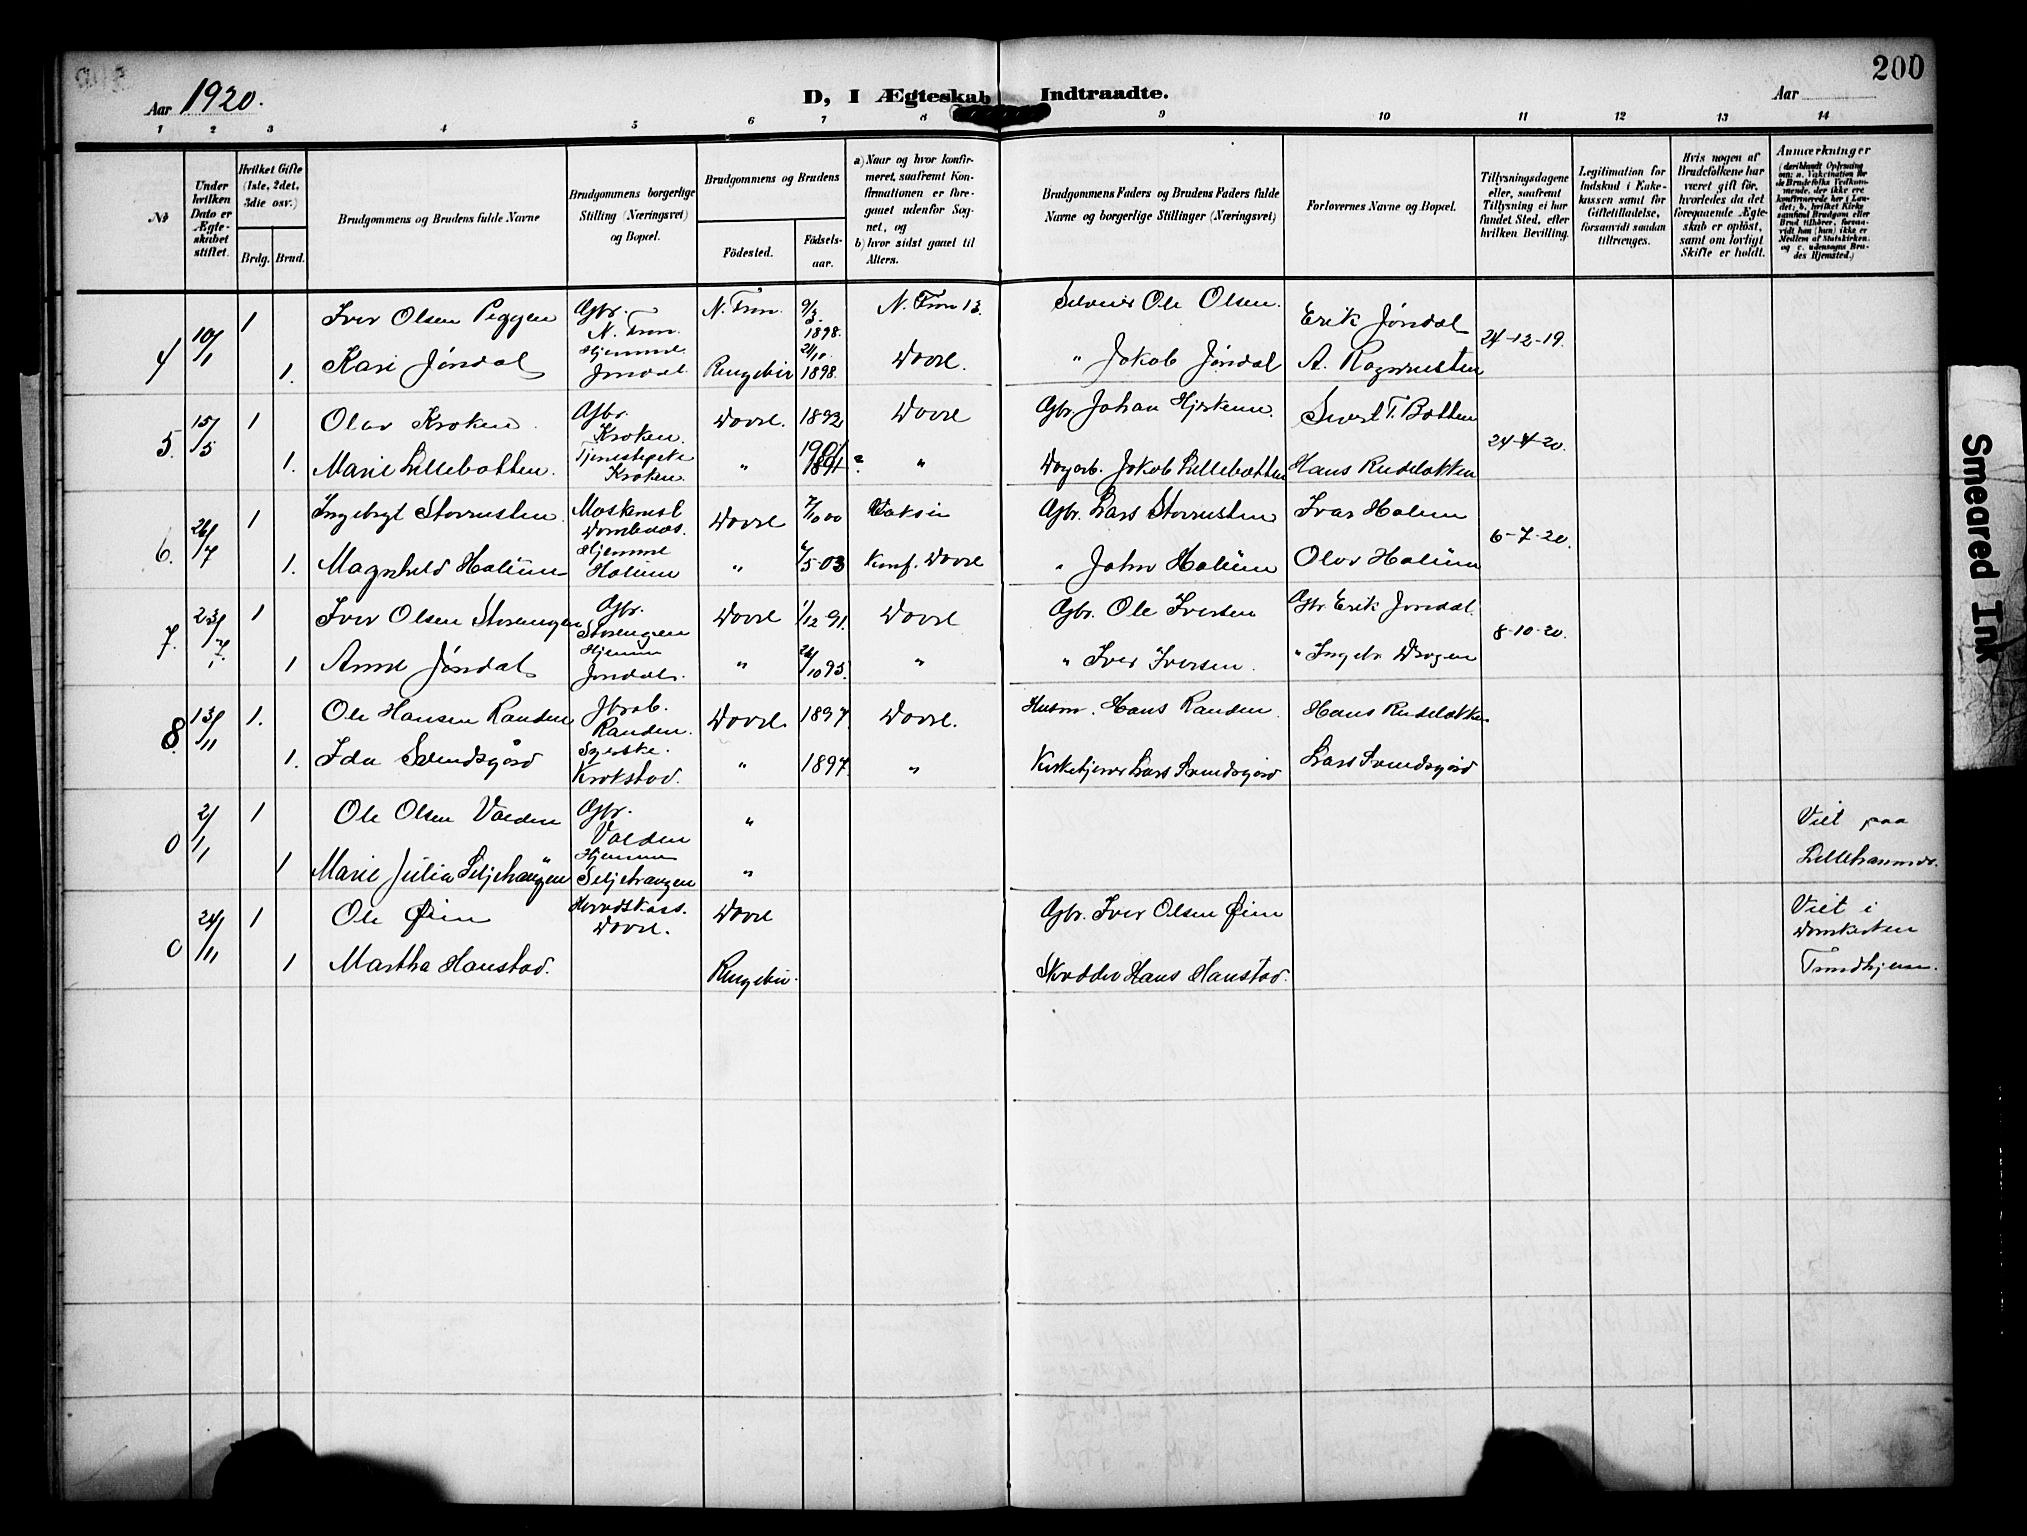 200
Aar 1920.
D, I Ægteskab Indtraadte.
Aar
1 2 3 4 5 6 7 8 9 10 11 12 13 14
№
Under hvilken Dato er Ægteskabet stiftet.
Hvilket Gifte (1ste, 2det, 3die osv.)
Brdg. Brud.
Brudgommens og Brudens fulde Navne
Brudgommens borgerlige Stilling (Næringsvei) og Bopæl.
Brudgommens og Brudens
Födested.
Födselsaar.
a) Naar og hvor konfirmeret, saafremt Konfirmationen er foregaaet udenfor Sognet, og
b) hvor sidst gaaet til Alters.
Brudgommens Faders og Brudens Faders fulde Navne og borgerlige Stillinger (Næringsvei)
Forlovernes Navne og Bopæl.
Tillysningsdagene eller, saafremt Tillysning ei har fundet Sted, efter hvilken Bevilling.
Legitimation for Indskud i Enkekassen samt for Giftetilladelse, forsaavidt saadan tiltrænges.
Hvis nogen af Brudefolkene har været gift för, hvorledes da det foregaaende Ægteskab er oplöst, samt om lovligt Skifte er holdt.
Anmærkninger
4 10/1 1 Iver Olsen Peggen Gbr. N. Tron. N. Tron. 9/3 1898. N. Tron 13. Ole Olsen. Erik Jøndal 24-12-19.
1. Kari Jøndal Hjemme Jøndal Ringebu 21/10 1898. Dovre. " Jakob Jøndal A.
5. 15/5 1 Olav Kroken. Gbr. Kroken. Dovre. 1892 Dovre Gbr. Johan Hjerkinn. Sivert T. Botten 24-4-20.
1. Marie Lillebotten. Kroken. " 1901 1891 " Jakob Lillebotten Hans Rudeløkken
6. 26/7 1 Ingebrgt Storrusten Dombaas. Dovre 7/10 00 Gbr. Lars Storrusten Ivar Holum 6-7-20.
1. Magnhild Holum Hjemme Holum " 5-03 Konf. Dovre " John Holum Olav Holum
7. 23/ 1 Iver Olsen Storengen Gbr. Storengen Dovre 1/12 91. Dovre Gbr. Ole Iversen Gbr. Erik Jøndal. 8-10-20.
1 Anne Jøndal Hjemme Jøndal. " 26/10 95. " " Iver Iversen. " Ingebr.
8. 13/11 1. Ole Hansen Randen Randen. Dovre 1897 Dovre. Husm. Hans Randen. Hans Rudeløkken
1. Ida Svendsgård Syerske. Krokstad. " 1897 " Kirketjener Lars Svendsgård Lars Svendsgård
0 2/1 1 Ole Olsen Valden Gbr. Valden " Viet paa Lillehammer.
1 Marie Julia Seljehaugen Hjemme Seljehaugen "
0 24/11 1 Ole Øien Dovre. Dovre Gbr. Iver Olsen Øien Viet i Domkirken Trondhjem.
1 Martha Hanstad. Ringebu. Skrædder Hans Hanstad.
Smeared Ink